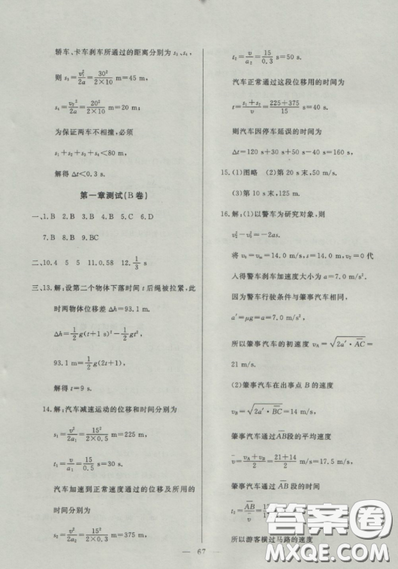 轿车、卡车刹车所通过的距离分别为s₁、s₂,
则s₁=v₁²/2a=30²/(2×10) m=45 m,
s₂=v₂²/2a=20²/(2×10) m=20 m;
为保证两车不相撞,必须
s₁+s₂+s₃+s₄<80 m,
解得Δt<0.3 s.
第一章测试(B卷)
一、1. D 2. B 3. B 4. B 5. C 6. B
7. B 8. D 9. BC
二、10. 4 5 5 11. 0.58 12. 1/3 s
三、13. 解:设第二个物体下落时间t后绳被拉紧,此
时两物体位移差Δh=93.1 m.
Δh=1/2 g(t+1 s)²−1/2 gt²;
93.1 m=1/2 g(2t+1).
解得t=9 s.
14. 解:汽车减速运动的位移和时间分别为
s₁=v²/2a₁=15²/(2×0.5) m=225 m,
t₁=v/a₁=15/0.5 s=30 s.
汽车加速到正常速度通过的位移及所用的
时间分别为
s₂=v²/2a₂=15²/(2×0.3) m=375 m,
t₂=v/a₂=15/0.3 s=50 s.
汽车正常通过这段位移用的时间为
t=(s₁+s₂)/v=(225+375)/15 s=40 s.
则汽车因停车延误的时间为
Δt=120 s+30 s+50 s−40 s=160 s
15. (1)图略 (2)第20 s末,50 m/s.
(3)第10 s末,125 m.
16. 解:以警车为研究对象,则
将v₀=14.0 m/s, 代
入得警车刹车加速度大小为a=7.0 m/s².
因为警车行驶条件与肇事汽车相同,
a′=μg=a=7.0 m/s²,
所以肇事汽车的初速度v_A=√(2a′·AC)=
21 m/s.
(2)肇事汽车在出事点B的速度
v_B=√(2a′·BC)=14 m/s,
肇事汽车通过AB段的平均速度
v=(v_A+v_B)/2=(21+14)/2 m/s=17.5 m/s.
肇事汽车通过AB段的时间
所以游客横过马路的速度
67
答案圈
MXQE.COM